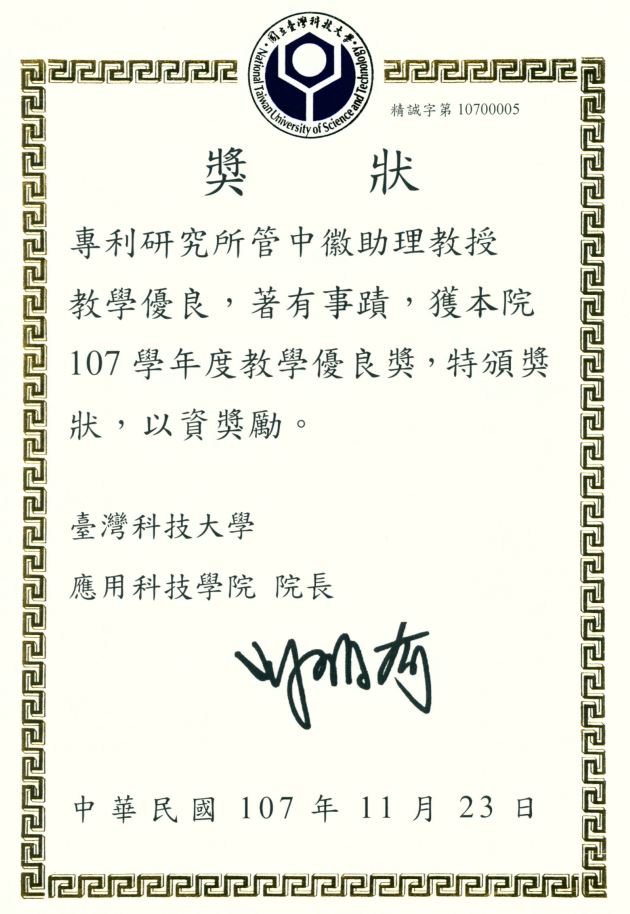 •國立臺灣科技大學•
National Taiwan University of Science and Technology
精誠字第 10700005
獎 狀
專利研究所管中徽助理教授
教學優良，著有事蹟，獲本院
107 學年度教學優良獎，特頒獎
狀，以資獎勵。
臺灣科技大學
應用科技學院 院長
中華民國 107 年 11 月 23 日